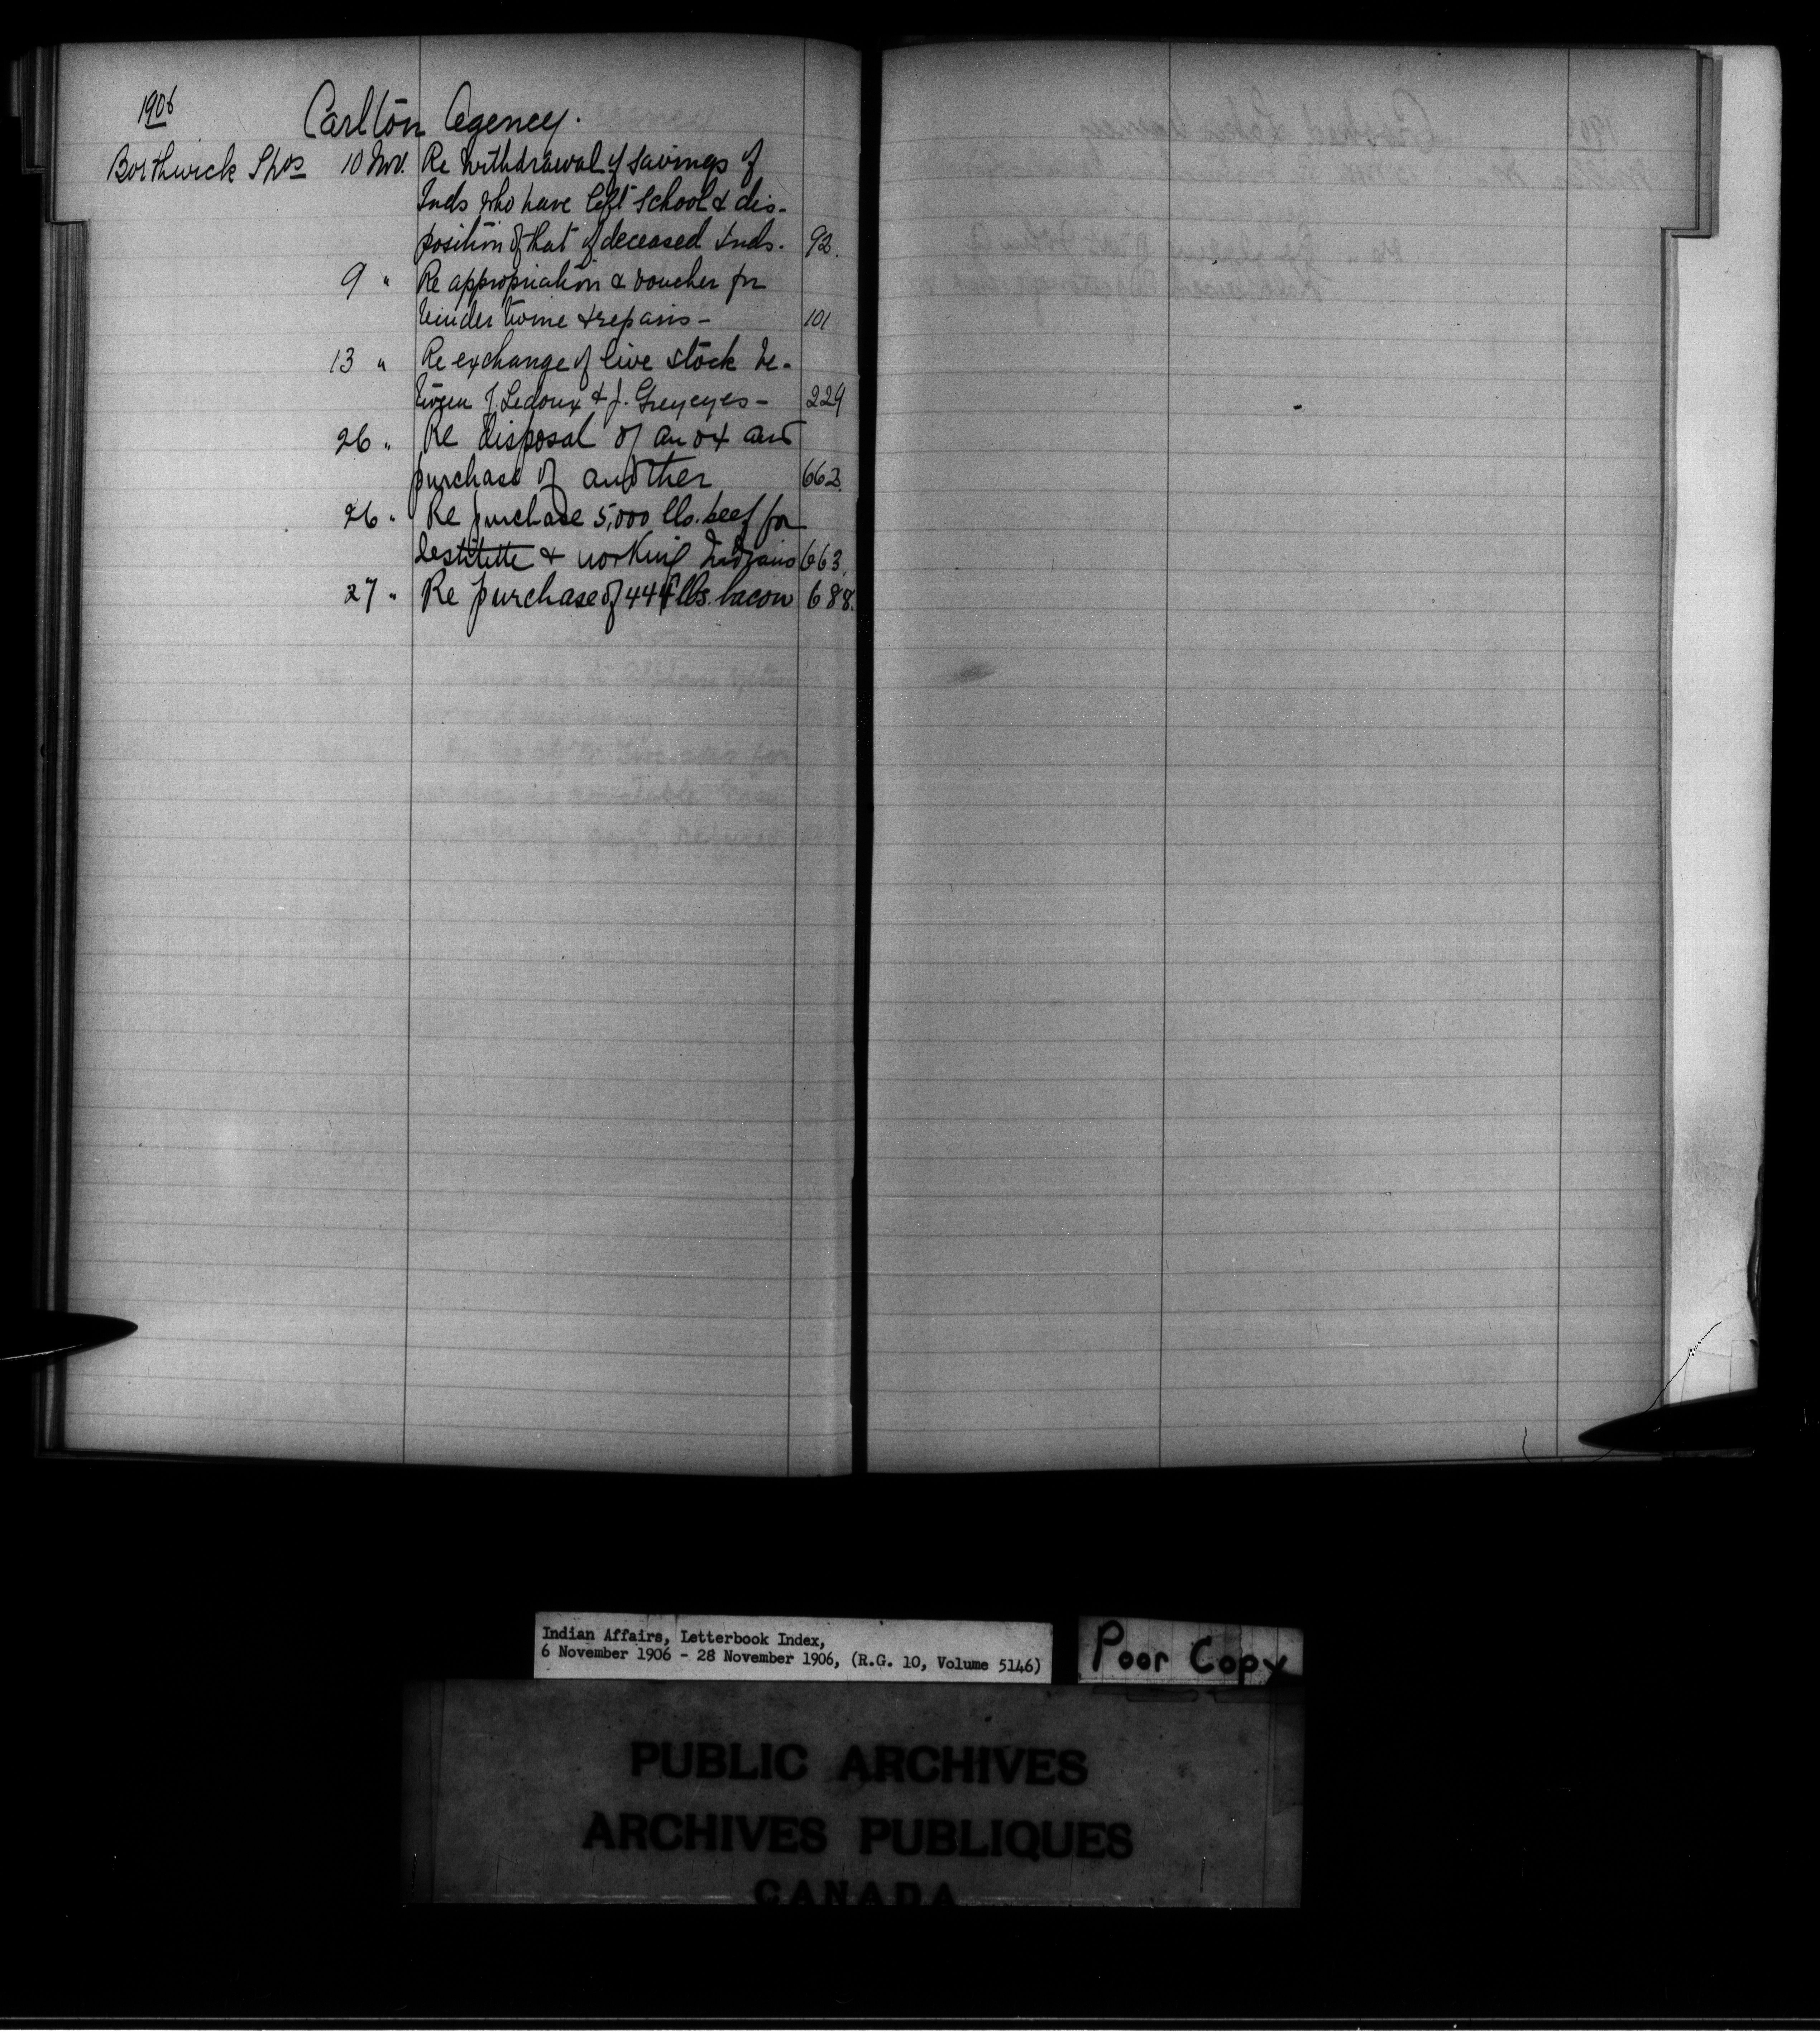 1906
Carlton Agency.
Borthwick Thos 10 Nov. Re withdrawal of savings of
Inds who have left school & dis-
position of that of deceased Inds. 92.
9 " Re appropriation & voucher for
binder twine & repairs - 101
13 " Re exchange of live stock be-
tween J. Ledoux & J. Greyeyes - 229
26 " Re disposal of an ox and
purchase of another 662.
26 " Re purchase 5,000 lbs. beef for
destitute & working Indians 663.
27 " Re purchase of 444 lbs. bacon 688.
Indian Affairs, Letterbook Index,
6 November 1906 - 28 November 1906, (R.G. 10, Volume 5146)
Poor Copy
PUBLIC ARCHIVES
ARCHIVES PUBLIQUES
CANADA